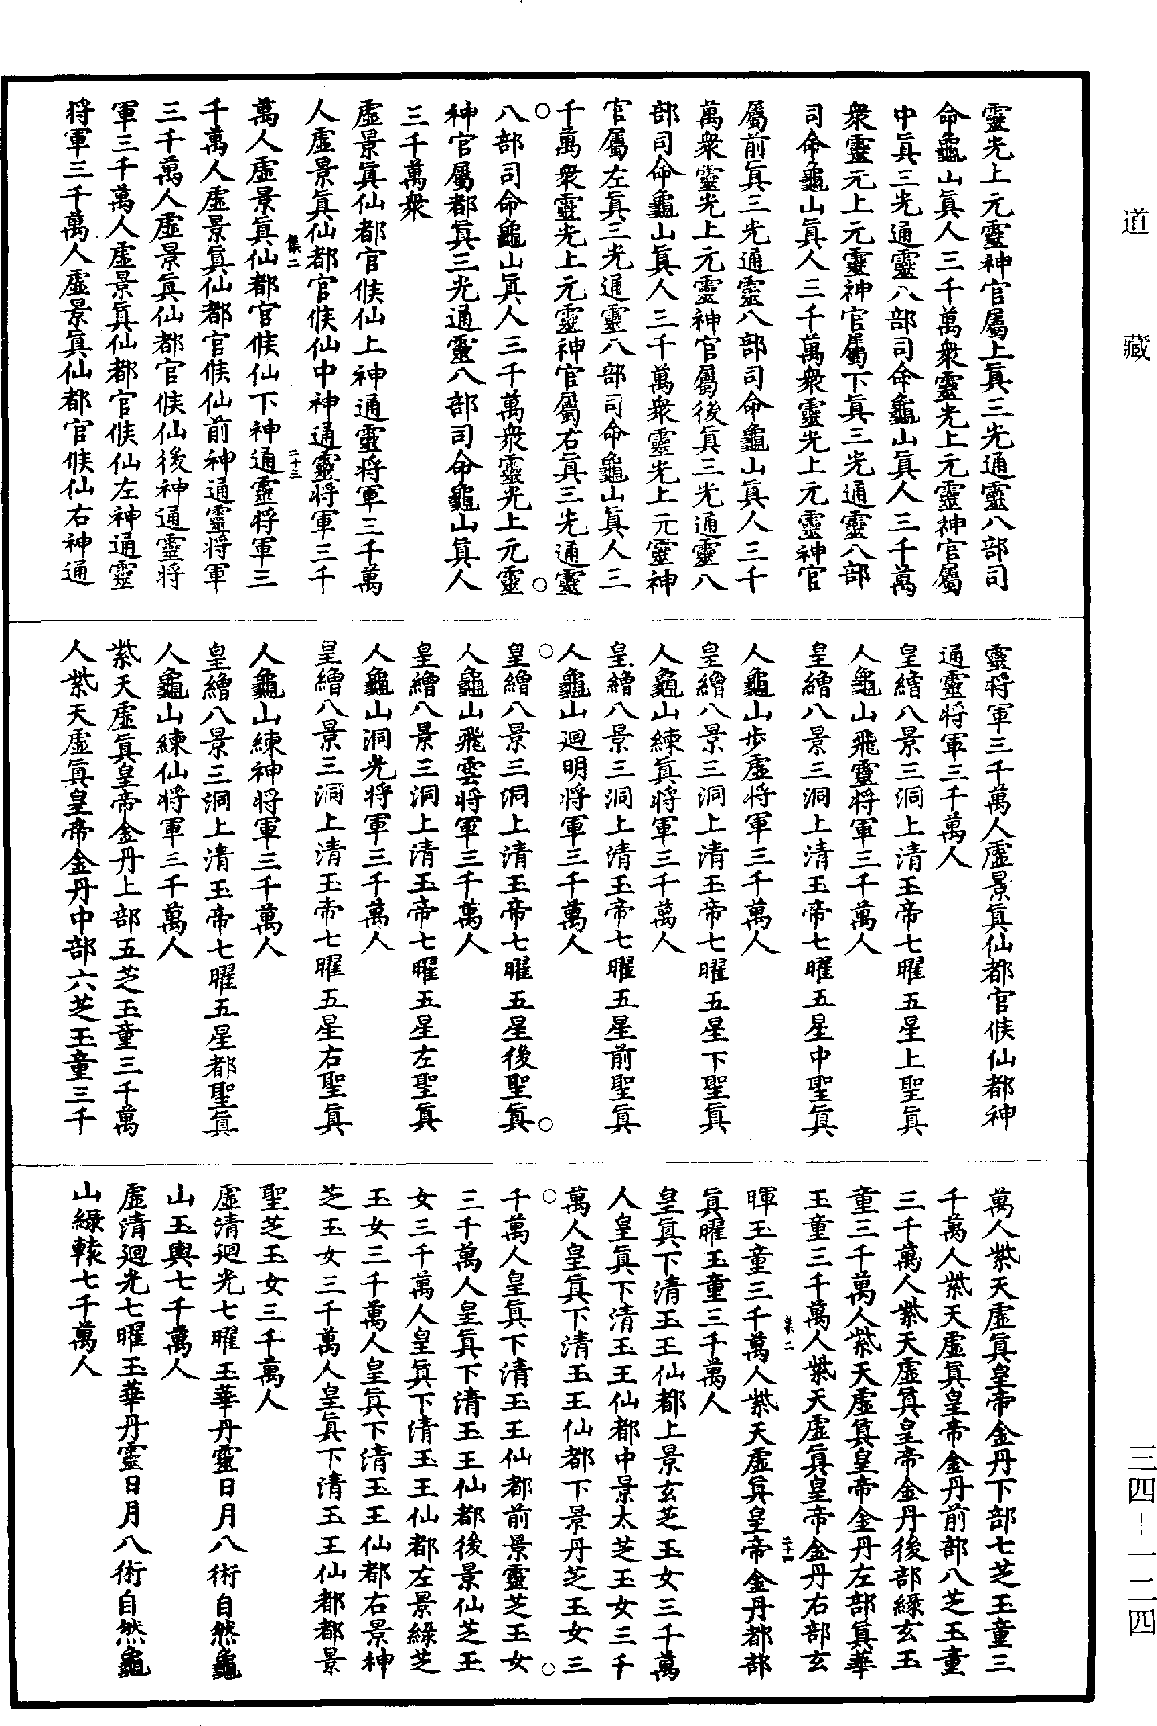 道藏
靈光上元靈神官屬上真三光通靈八部司
命龜山真人三千萬衆靈光上元靈神官屬
中真三光通靈八部司命龜山真人三千萬
衆靈元上元靈神官屬下真三光通靈八部
司命龜山真人三千萬衆靈光上元靈神官
屬前真三光通靈八部司命龜山真人三千
萬衆靈光上元靈神官屬後真三光通靈八
部司命龜山真人三千萬衆靈光上元靈神
官屬左真三光通靈八部司命龜山真人三
千萬衆靈光上元靈神官屬右真三光通靈
八部司命龜山真人三千萬衆靈光上元靈
神官屬都真三光通靈八部司命龜山真人
三千萬衆
虛景真仙都官候仙上神通靈將軍三千萬
人虛景真仙都官候仙中神通靈將軍三千
集二 二十三
萬人虛景真仙都官候仙下神通靈將軍三
千萬人虛景真仙都官候仙前神通靈將軍
三千萬人虛景真仙都官候仙後神通靈將
軍三千萬人虛景真仙都官候仙左神通靈
將軍三千萬人虛景真仙都官候仙右神通
靈將軍三千萬人虛景真仙都官候仙都神
通靈將軍三千萬人
皇繒八景三洞上清玉帝七曜五星上聖真
人龜山飛靈將軍三千萬人
皇繒八景三洞上清玉帝七曜五星中聖真
人龜山步虛將軍三千萬人
皇繒八景三洞上清玉帝七曜五星下聖真
人龜山練真將軍三千萬人
皇繒八景三洞上清玉帝七曜五星前聖真
人龜山迴明將軍三千萬人
皇繒八景三洞上清玉帝七曜五星後聖真
人龜山飛雲將軍三千萬人
皇繒八景三洞上清玉帝七曜五星左聖真
人龜山洞光將軍三千萬人
皇繒八景三洞上清玉帝七曜五星右聖真
人龜山練神將軍三千萬人
皇繒八景三洞上清玉帝七曜五星都聖真
人龜山練仙將軍三千萬人
紫天虛真皇帝金丹上部五芝玉童三千萬
人紫天虛真皇帝金丹中部六芝玉童三千
萬人紫天虛真皇帝金丹下部七芝玉童三
千萬人紫天虛真皇帝金丹前部八芝玉童
三千萬人紫天虛真皇帝金丹後部綠玄玉
童三千萬人紫天虛真皇帝金丹左部真華
玉童三千萬人紫天虛真皇帝金丹右部玄
集二
暉玉童三千萬人紫天虛真皇帝金丹都部
真曜玉童三千萬人
皇真下清玉王仙都上景玄芝玉女三千萬
人皇真下清玉王仙都中景太芝玉女三千
萬人皇真下清玉王仙都下景丹芝玉女三
千萬人皇真下清玉王仙都前景靈芝玉女
三千萬人皇真下清玉王仙都後景仙芝玉
女三千萬人皇真下清玉王仙都左景綠芝
玉女三千萬人皇真下清玉王仙都右景神
芝玉女三千萬人皇真下清玉王仙都都景
聖芝玉女三千萬人
虛清迴光七曜玉華丹靈日月八術自然龜
山玉輿七千萬人
虛清迴光七曜玉華丹靈日月八術自然龜
山綠轅七千萬人
三四－一二四